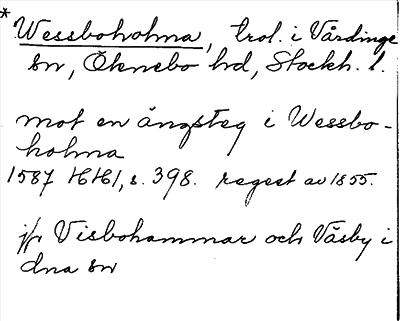 * Wessboholma, trol. i Vårdinge
sn, Öknebo hd, Stockh. l.
mot en ängsteg i Wessbo-
holma
1587 HH1, s. 398. regest av 1855.
jfr Visbohammar och Väsby i
dna sn